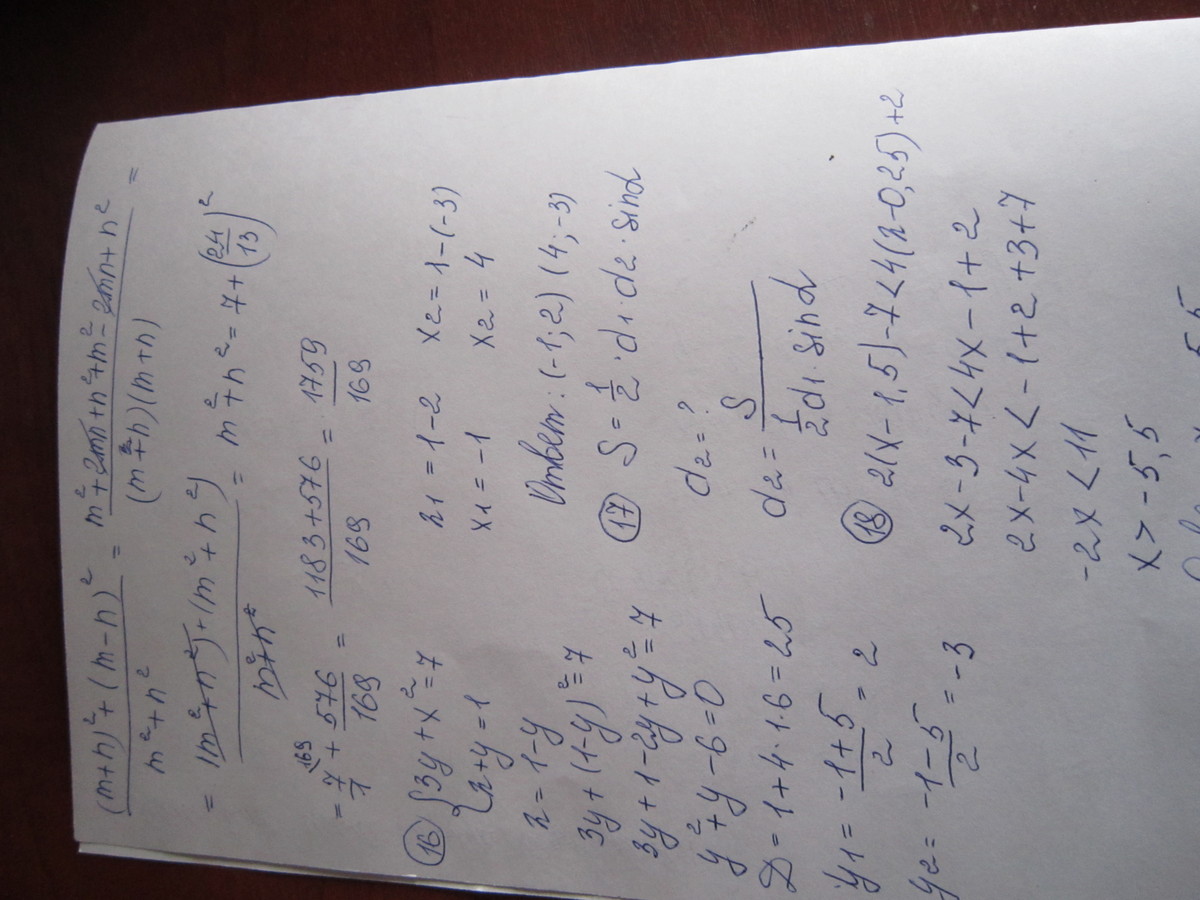 (m+n)²+(m-n)² / m²+n² = m²+2mn+n²+m²-2mn+n² / (m²+n)(m+n) =
= (m²+n²)+(m²+n²) / m²+n² = m²+n² = 7+(24/13)²
= 7/1 ¹⁶⁹ + 576/169 = 1183+576 / 169 = 1759/169
(16) { 3y+x²=7
x+y=1
x=1-y
3y+(1-y)²=7
3y+1-2y+y²=7
y²+y-6=0
D=1+4·1·6=25
y1=-1+5/2=2
y2=-1-5/2=-3
x1=1-2 x2=1-(-3)
x1=-1 x2=4
Ответ: (-1;2) (4;-3)
(17) S=1/2·d1·d2·sinα
d2=?
d2=S / 1/2 d1·sinα
(18) 2(x-1,5)-7<4(x-0,25)+2
2x-3-7<4x-1+2
2x-4x<-1+2+3+7
-2x<11
x>-5,5